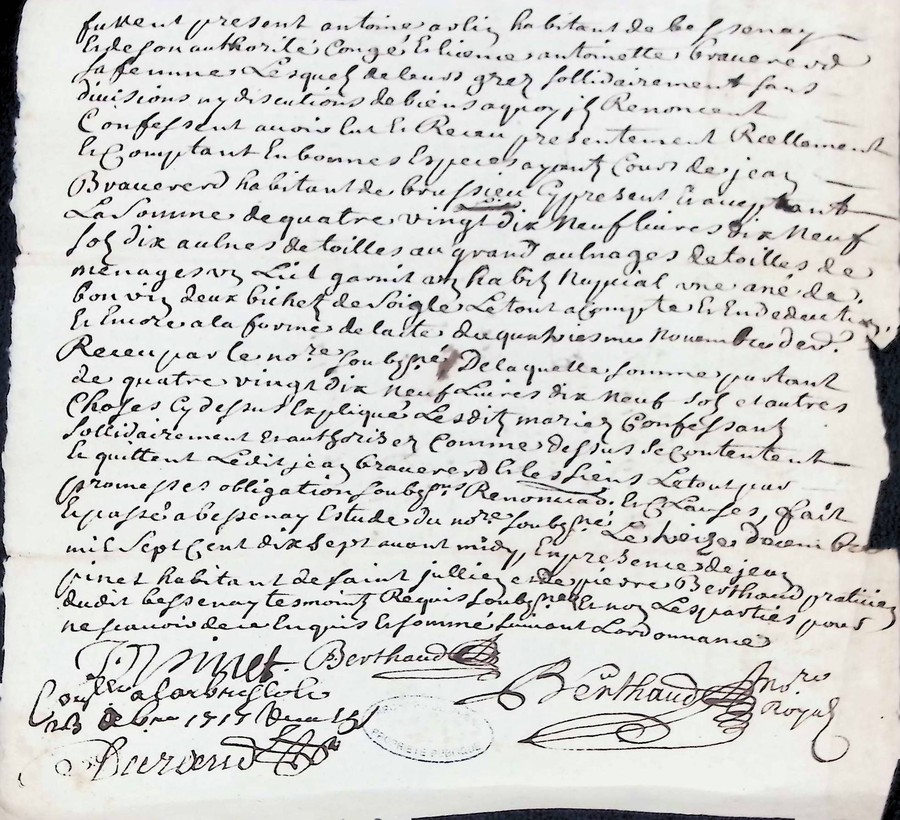 fussent present antoine aolin habitant de bessenay
Et de son authorité Congé Et licence antoinette braevererd
sa femme Lesquels de leurs grez sollidairement sans
divisions ny discutions de biens a quoy ilz Renoncent
Confessent avoir Eut Et Receu presentement Reellement
Et Comptant En bonnes Especes ayantz Cours de jean
Brauererd habitant de brussieu Cy present Et aceptant
La Somme de quatre vingt dix Neuf livres dix Neuf
solz dix aulnes de toilles au grand aulnages de toilles de
menages un Lict garnit un habit Nupcial une ané de
bon vin deux bichet de Soigle Le tout a compte Et En deduction
Et Encore a la forme de l'acte du quatriesme Novembre der.
Receu par le nore soubzné De laquelle somme partant
de quatre vingt dix Neuf Livres dix Neuf solz et autres
Choses Cy dessus Expliqué Les ditz mariez Confessant
sollidairement Et authorizez Comme dessus se contentent
Et quittent Le dit jean brauererd Et les siens Le tout par
promesses obligation soubzons Renonciaõ Et Clauses, fait
Et passé a bessenay Estude du nore soubzné Le treize decembre
mil Sept Cent dix Sept avant midy, En presence de jean
pinet habitant de saint jullien et de pierre Berthaud praticien
du dit bessenay tesmointz Requis soubznez Et non Les parties pour
ne scavoir de ce Enquis Et somme suivant L'ordonnance
J Pinet Berthaud
Berthaud nore Royal
Conllé a larbresle le
23 xbre 1717 Receu